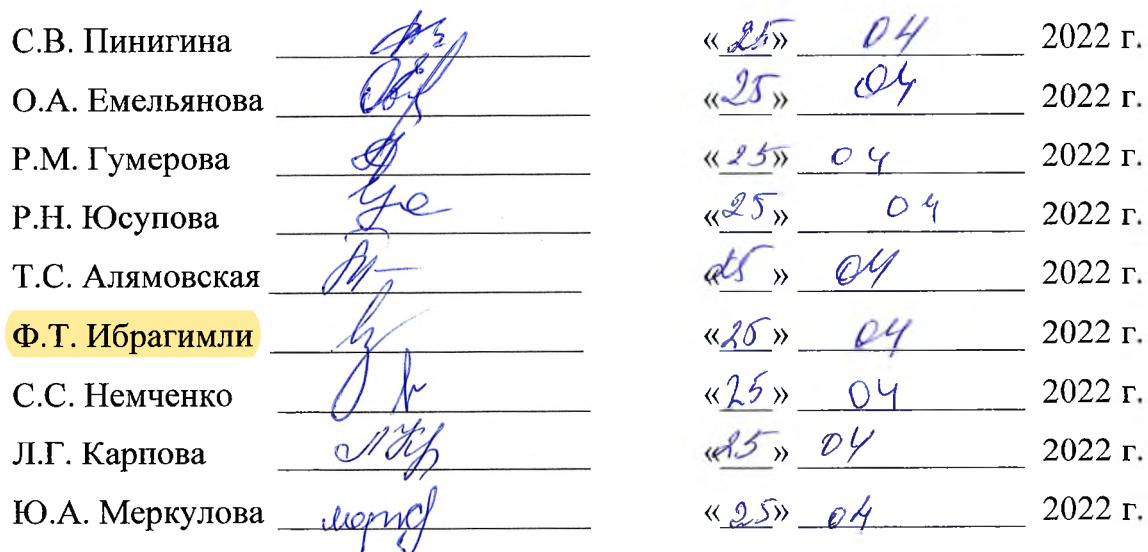 С.В. Пинигина «25» 04 2022 г.
О.А. Емельянова «25» 04 2022 г.
Р.М. Гумерова «25» 04 2022 г.
Р.Н. Юсупова «25» 04 2022 г.
Т.С. Алямовская «25» 04 2022 г.
Ф.Т. Ибрагимли «25» 04 2022 г.
С.С. Немченко «25» 04 2022 г.
Л.Г. Карпова «25» 04 2022 г.
Ю.А. Меркулова «25» 04 2022 г.